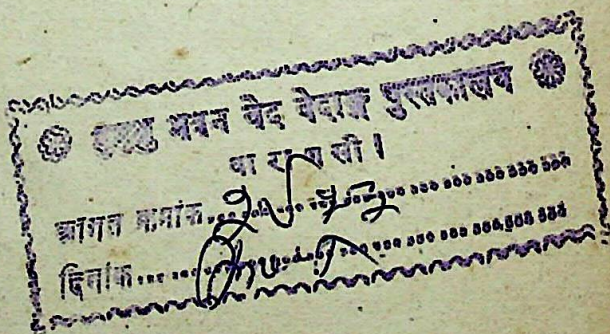 मुमुक्षु भवन वेद वेदाङ्ग पुस्तकालय
वा रा ण सी ।
आगत क्रमांक
दिनांक